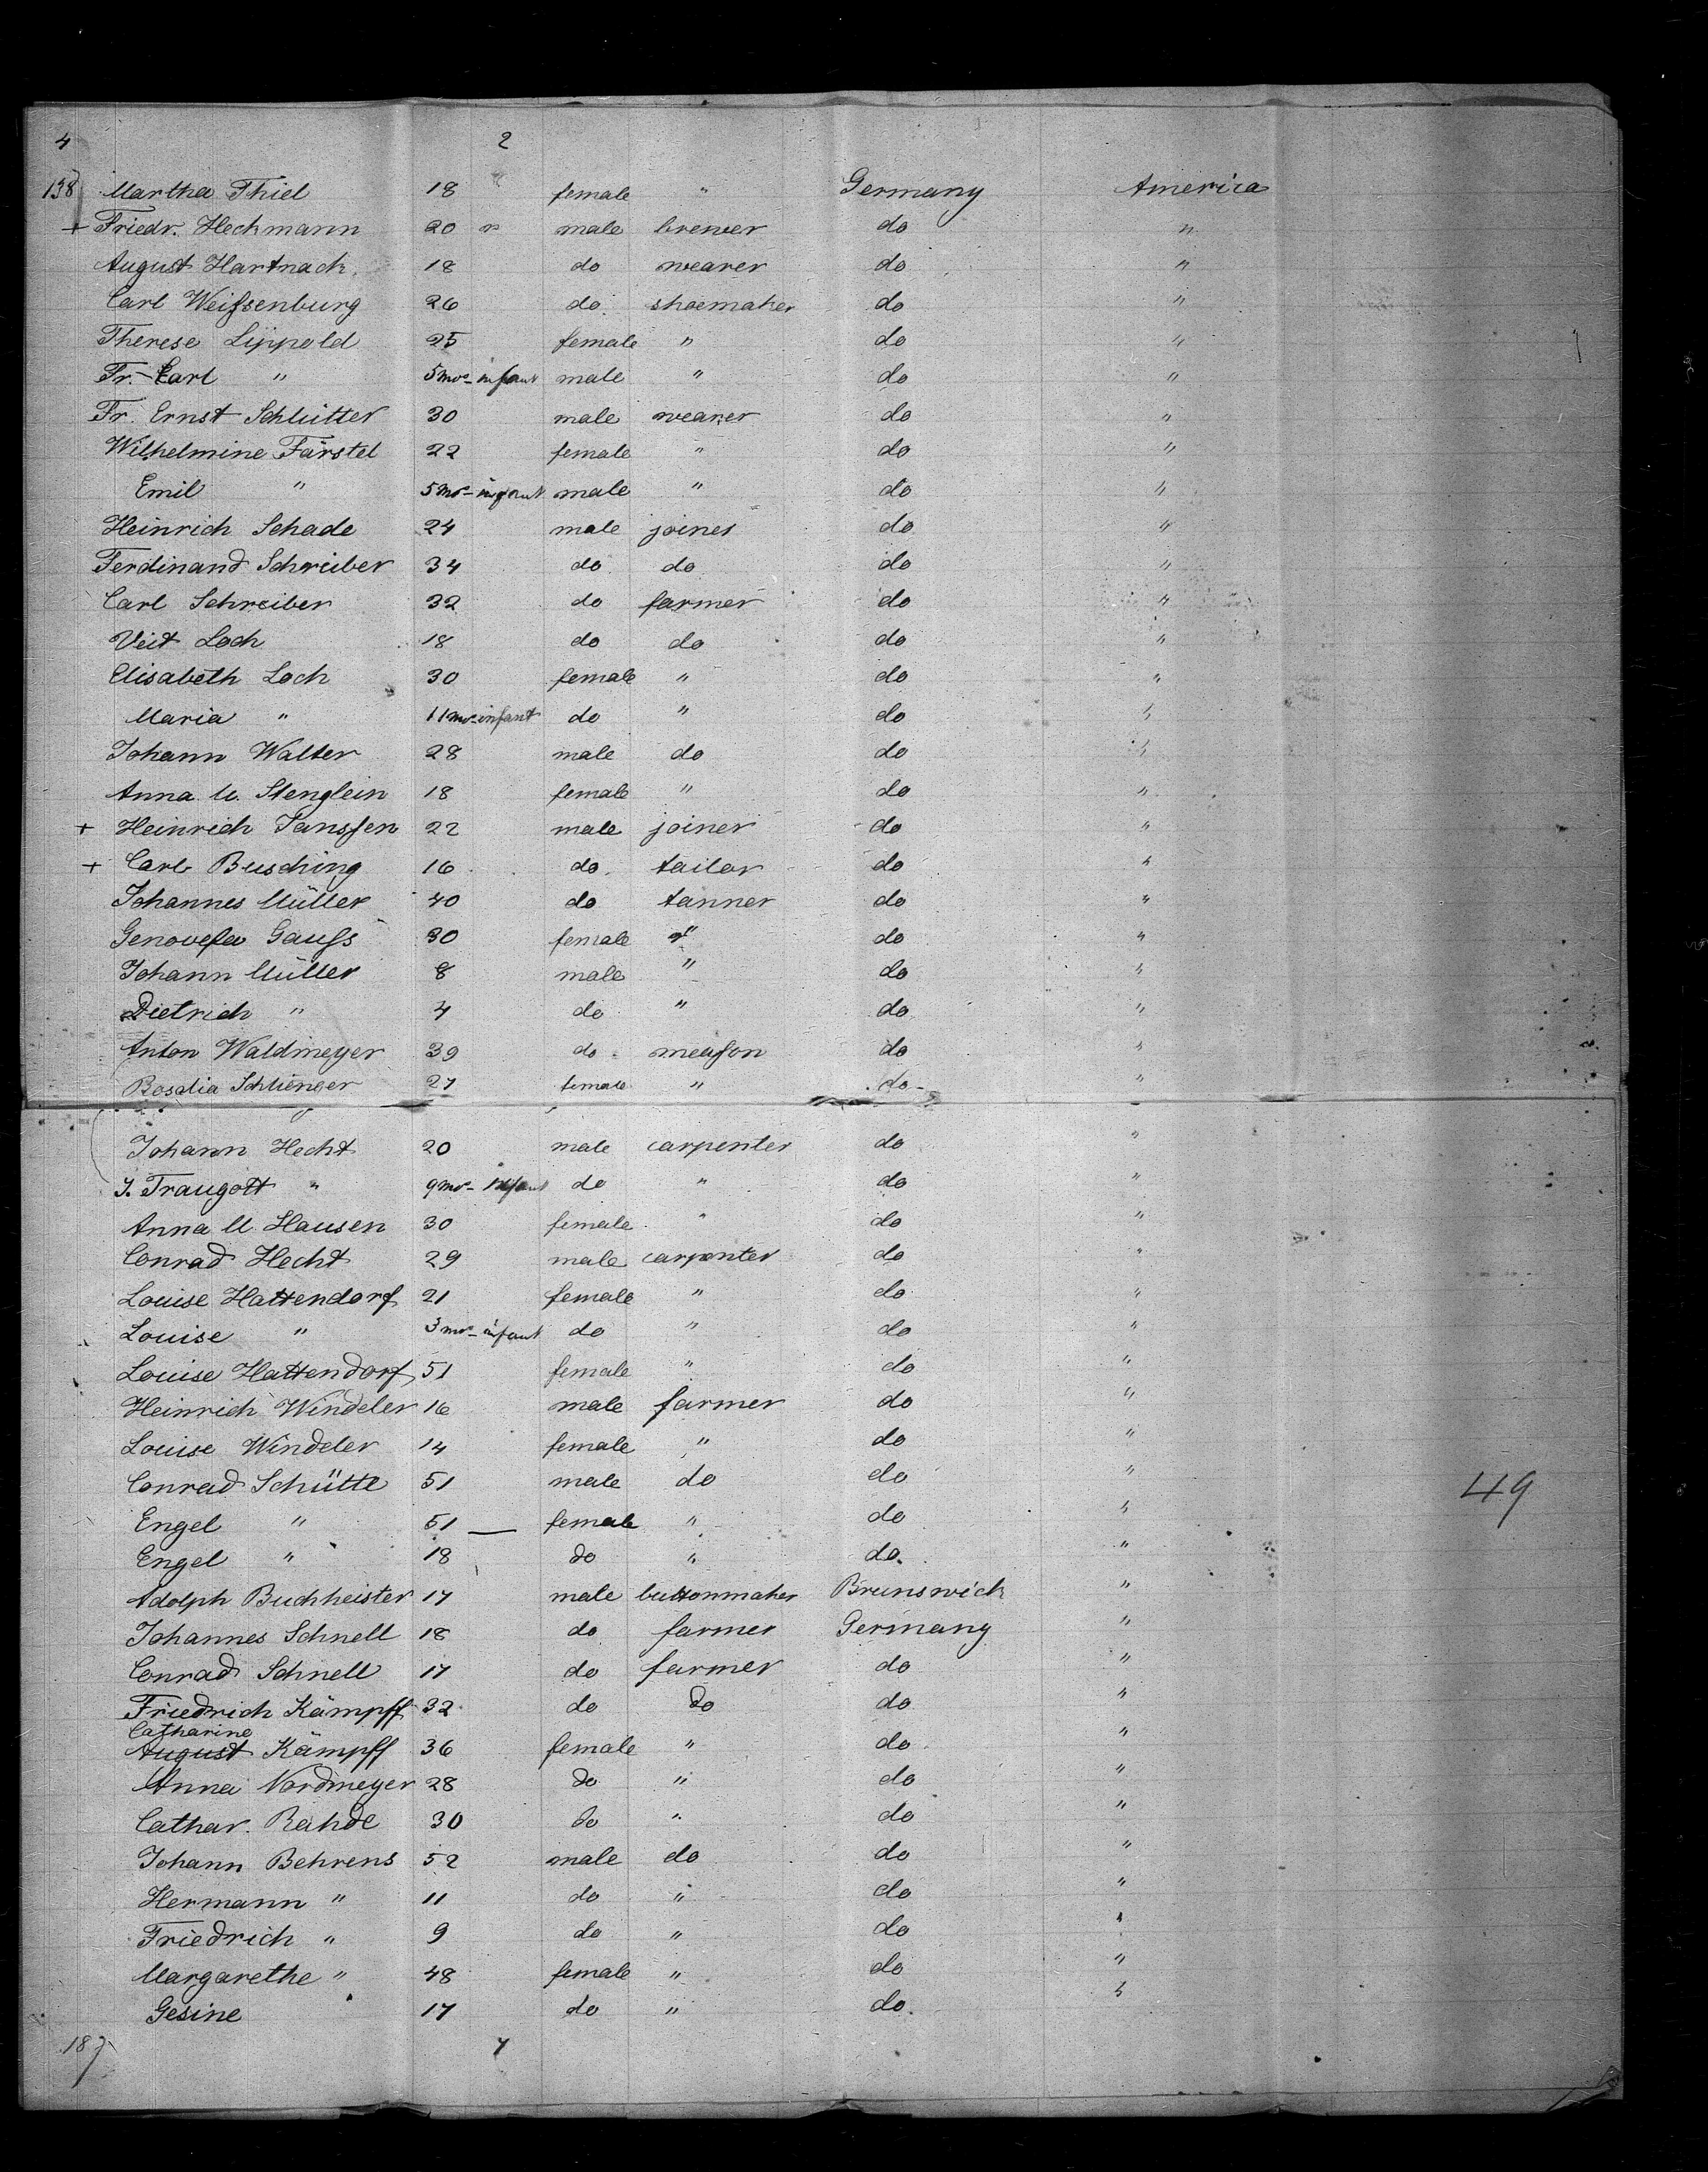 4 2
138 Martha Thiel 18 female " Germany America
+ Friedr. Heckmann 20 male brewer do "
August Hartnack 18 do weaver do "
Carl Weißenburg 26 do shoemaker do "
Therese Lippold 25 female " do "
Fr. Carl " 5 mos - infant male " do "
Fr. Ernst Schlütter 30 male weaver do "
Wilhelmine Färstel 22 female " do "
Emil " 5 mos - infant male " do "
Heinrich Schade 24 male joiner do "
Ferdinand Schreiber 34 do do do "
Carl Schreiber 32 do farmer do "
Veit Loch 18 do do do "
Elisabeth Loch 30 female " do "
Maria " 11 mos - infant do " do "
Johann Walter 28 male do do "
Anna M. Stenglein 18 female " do "
+ Heinrich Janssen 22 male joiner do "
+ Carl Busching 16 do tailor do "
Johannes Müller 40 do tanner do "
Genovefa Gauß 30 female " do "
Johann Müller 8 male " do "
Dietrich " 4 do " do "
Anton Waldmeyer 39 do meason do "
Rosalia Schlienger 27 female " do "
Johann Hecht 20 male carpenter do "
J. Traugott " 9 mos - infant do " do "
Anna M. Hausen 30 female " do "
Conrad Hecht 29 male carpenter do "
Louise Hattendorf 21 female " do "
Louise " 3 mos - infant do " do "
Louise Hattendorf 51 female " do "
Heinrich Windeler 16 male farmer do "
Louise Windeler 14 female " do "
Conrad Schütte 51 male do do " 49
Engel " 51 — female " do "
Engel " 18 do " do. "
Adolph Buchheister 17 male buttonmaker Brunswick "
Johannes Schnell 18 do farmer Germany "
Conrad Schnell 17 do farmer do "
Friedrich Kämpff 32 do do do "
Catharine
August Kämpff 36 female " do "
Anna Nordmeyer 28 do " do "
Cathar. Rahde 30 do " do "
Johann Behrens 52 male do do "
Hermann " 11 do " do "
Friedrich " 9 do " do "
Margarethe " 48 female " do "
Gesine " 17 do " do. "
187 7